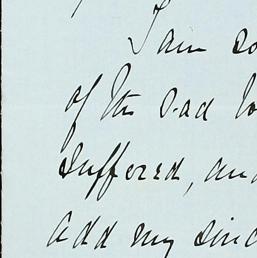 I am so
of the sad lo
suffered, and
add my sinc